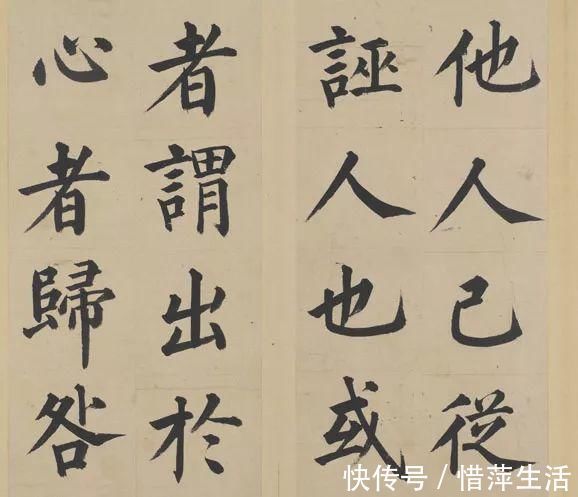 他人己從
誣人也或
者謂出於
心者歸咎
快传号 / 惜萍生活